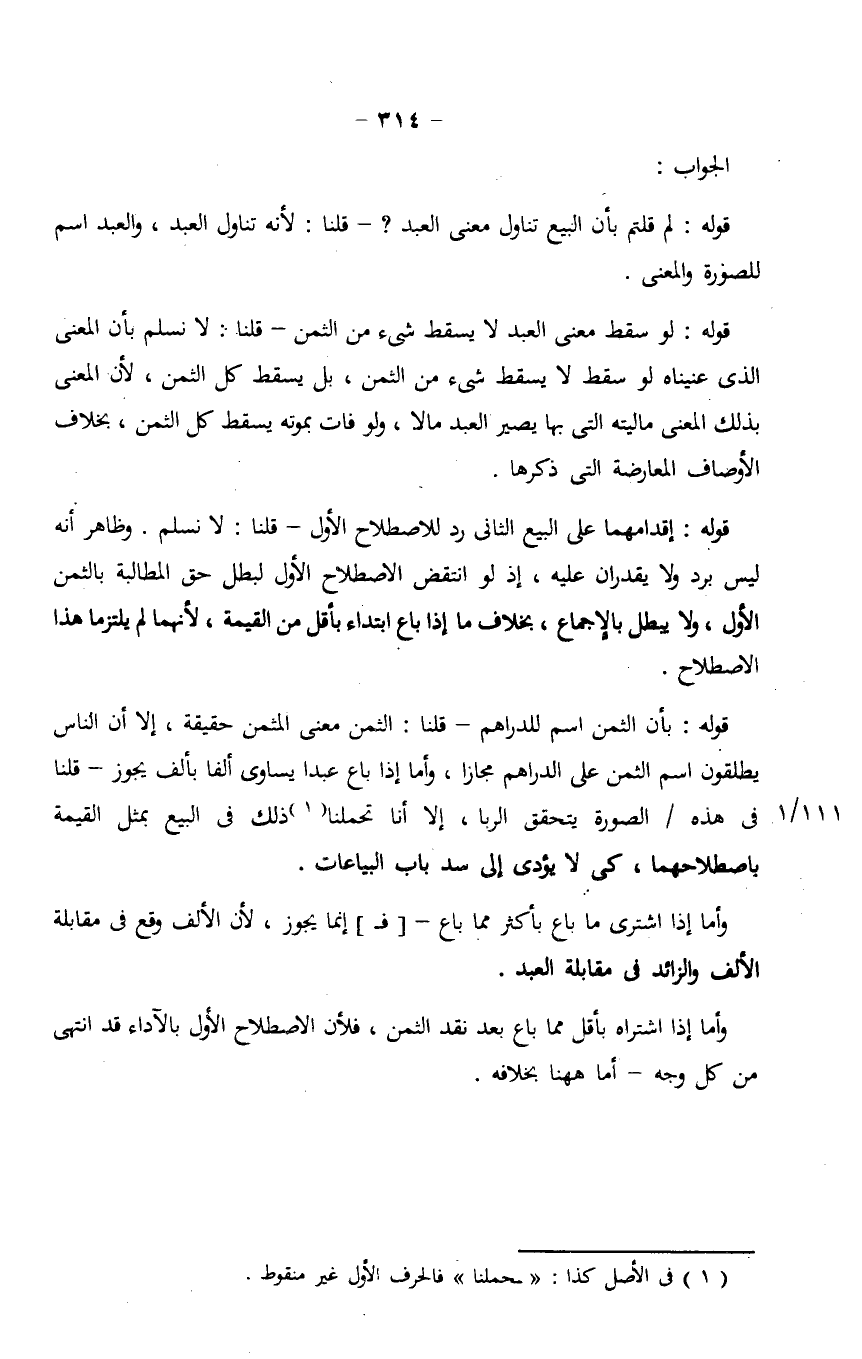 – ٣١٤ –
الجواب :
قوله : لم قلتم بأن البيع تناول معنى العبد ? – قلنا : لأنه تناول العبد ، والعبد اسم
للصورة والمعنى .
قوله : لو سقط معنى العبد لا يسقط شىء من الثمن – قلنا : لا نسلم بأن المعنى
الذى عنيناه لو سقط لا يسقط شىء من الثمن ، بل يسقط كل الثمن ، لأن المعنى
بذلك المعنى ماليته التى بها يصير العبد مالا ، ولو فات بموته يسقط كل الثمن ، بخلاف
الأوصاف المعارضة التى ذكرها .
قوله : إقدامهما على البيع الثانى رد للاصطلاح الأول – قلنا : لا نسلم . وظاهر أنه
ليس برد ولا يقدران عليه ، إذ لو انتقض الاصطلاح الأول لبطل حق المطالبة بالثمن
الأول ، ولا يبطل بالإجماع ، بخلاف ما إذا باع ابتداء بأقل من القيمة ، لأنهما لم يلتزما هذا
الاصطلاح .
قوله : بأن الثمن اسم للدراهم – قلنا : الثمن معنى المثمن حقيقة ، إلا أن الناس
يطلقون اسم الثمن على الدراهم مجازا ، وأما إذا باع عبدا يساوى ألفا بألف يجوز – قلنا
فى هذه / الصورة يتحقق الربا ، إلا أنا تحملنا(١)ذلك فى البيع بمثل القيمة ١/١١١
باصطلاحهما ، كى لا يؤدى إلى سد باب البياعات .
وأما إذا اشترى ما باع بأكثر مما باع – [ فـ ] إنما يجوز ، لأن الألف وقع فى مقابلة
الألف والزائد فى مقابلة العبد .
وأما إذا اشتراه بأقل مما باع بعد نقد الثمن ، فلأن الاصطلاح الأول بالآداء قد انتهى
من كل وجه – أما ههنا بخلافه .
( ١ ) فى الأصل كذا : « ـحملنا » فالحرف الأول غير منقوط .